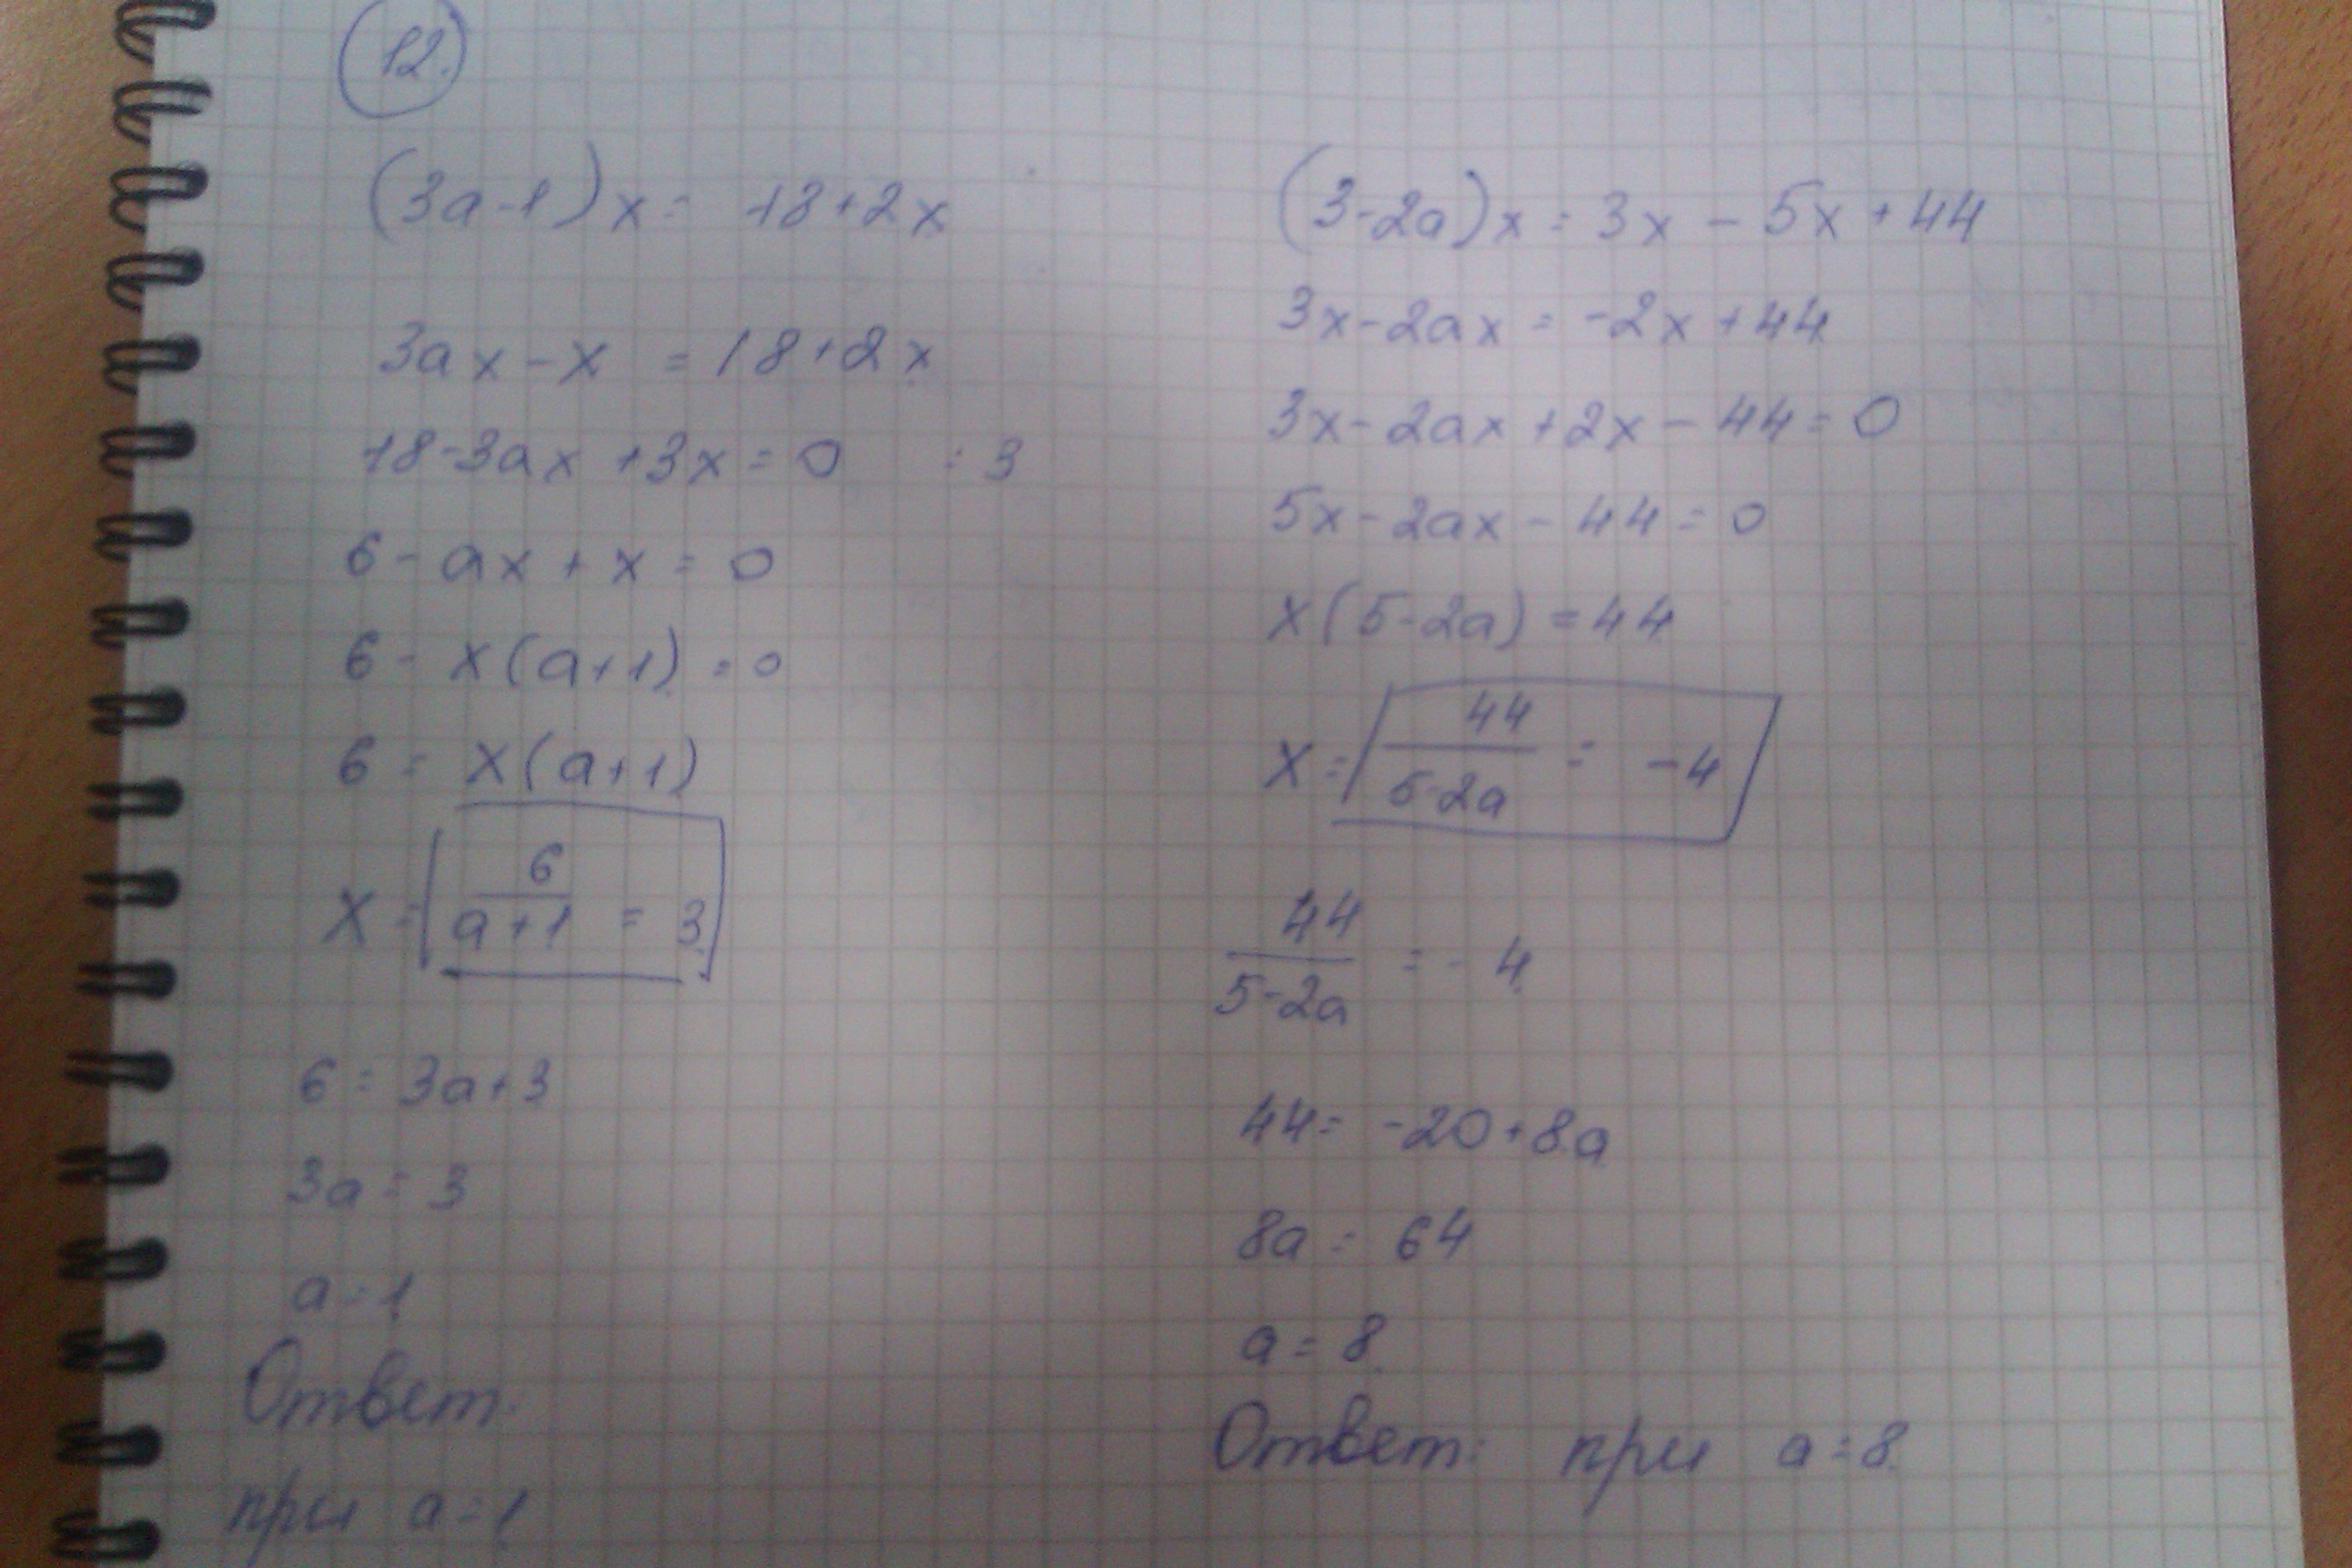 12.
(3a-1)x = 18+2x
3ax-x = 18+2x
18-3ax+3x=0 :3
6-ax+x=0
6-x(a+1)=0
6=x(a+1)
x= 6/(a+1) = 3
6=3a+3
3a=3
a=1
Ответ:
при a=1
(3-2a)x=3x-5x+44
3x-2ax=-2x+44
3x-2ax+2x-44=0
5x-2ax-44=0
x(5-2a)=44
x= 44/(5-2a) = -4
44/(5-2a) = -4
44=-20+8a
8a=64
a=8
Ответ: при a=8